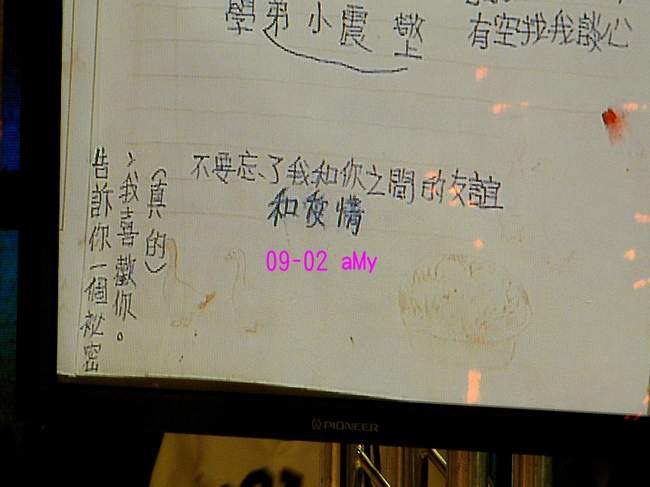 學弟小震 敬上
有空找我談心
不要忘了我和你之間的友誼
和愛情
告訴你一個祕密
,我喜歡你。
(真的)
09-02 aMy
PIONEER